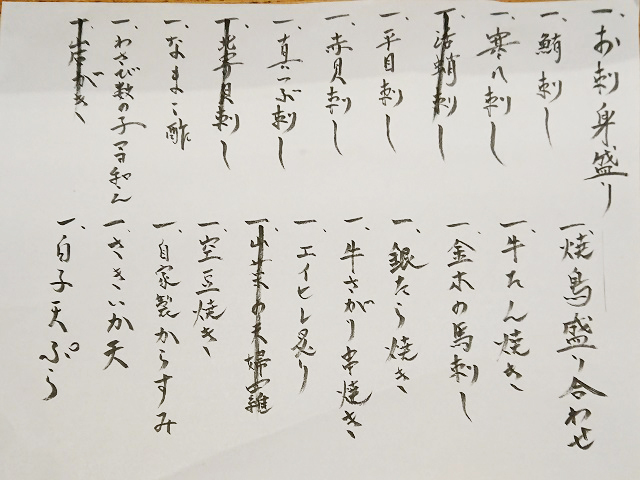 一、お刺身盛り
一、鮪刺し
一、寒八刺し
一、活蛸刺し
一、平目刺し
一、赤貝刺し
一、真つぶ刺し
一、北寄貝刺し
一、なまこ酢
一、わさび数の子
一、岩がき
一、焼鳥盛り合わせ
一、牛たん焼き
一、金木の馬刺し
一、銀たら焼き
一、牛さがり串焼き
一、エイヒレ炙り
一、山菜の天婦羅
一、空豆焼き
一、自家製からすみ
一、さきいか天
一、白子天ぷら